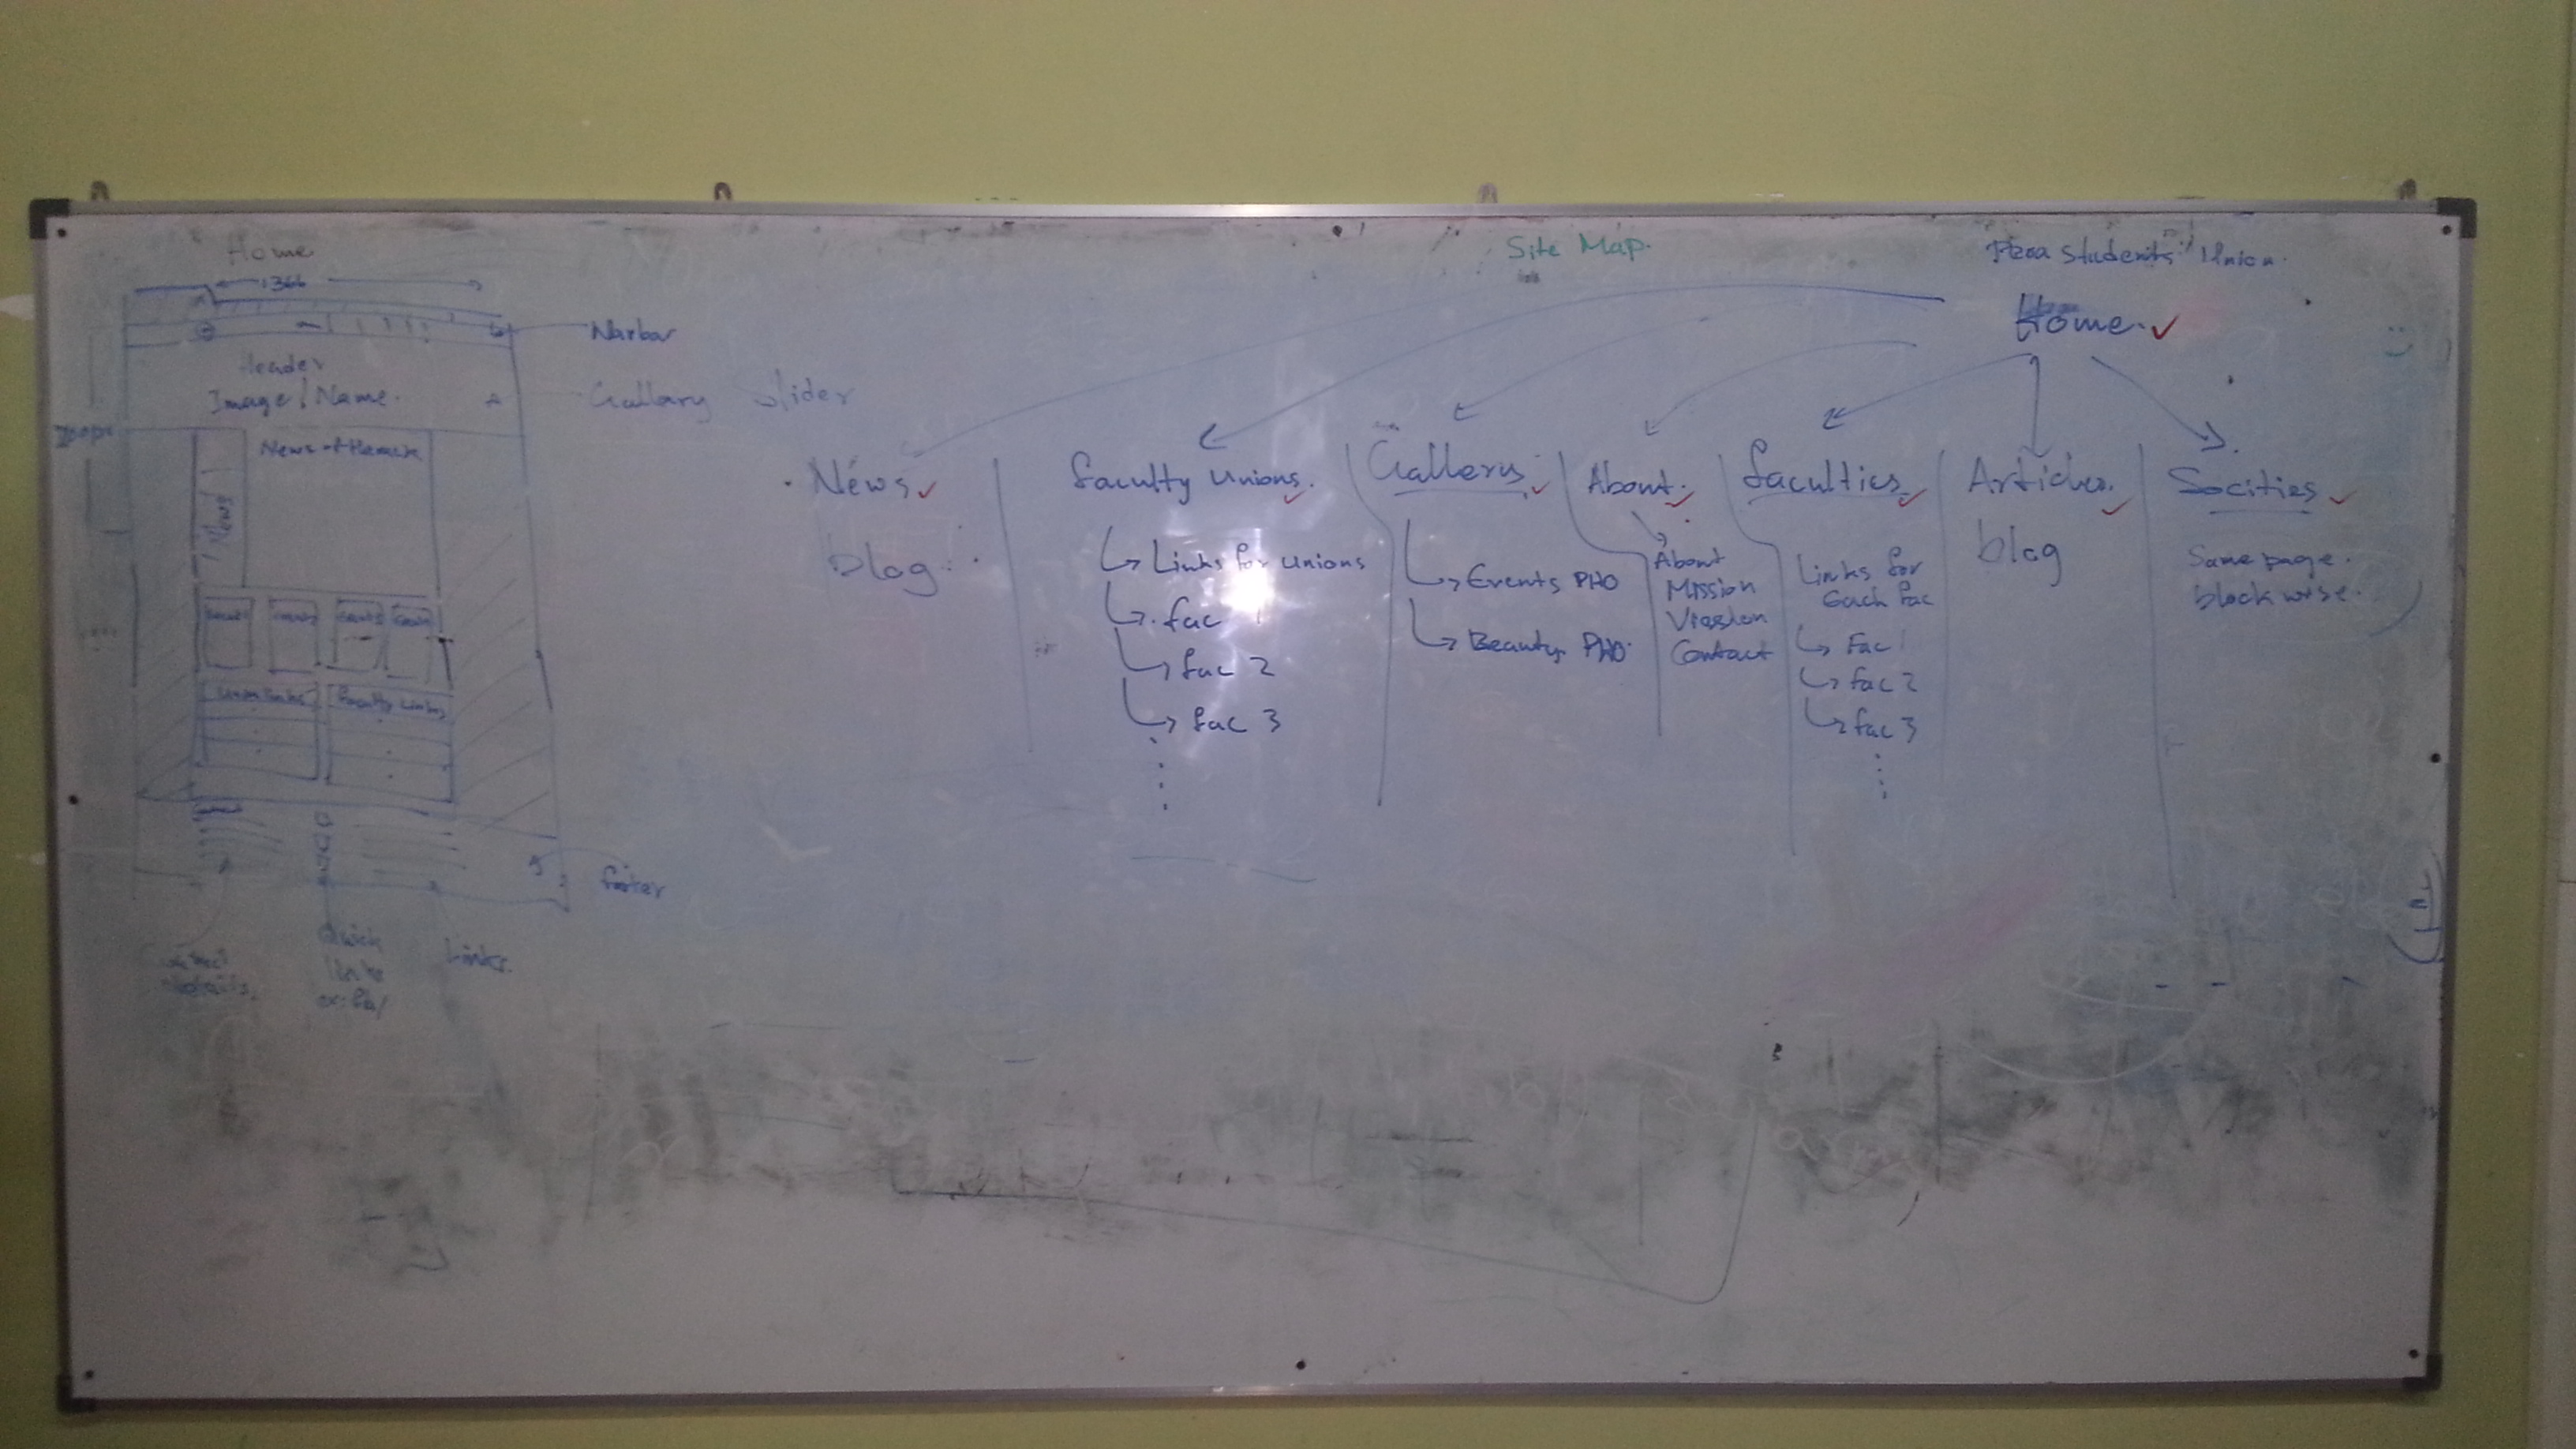 Home
1366
Navbar
Header
Image / Name.
Gallary slider
News
Union links
Faculty Links
footer
details
Quick
links
Links.
Site Map.
Students' Union.
Home.
News
blog
faculty unions.
Links for unions
fac 1
fac 2
fac 3
Gallery
Events PHO
Beauty PHO
About.
About
Mission
Contact
faculties
Links for
Each fac
Fac 1
fac 2
fac 3
Articles.
blog
Socities
Same page.
block wise.